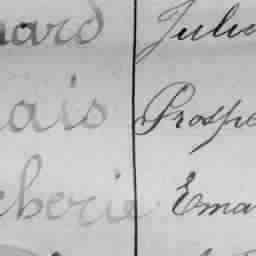 nard Juli
ais Prospe
cherie Ema